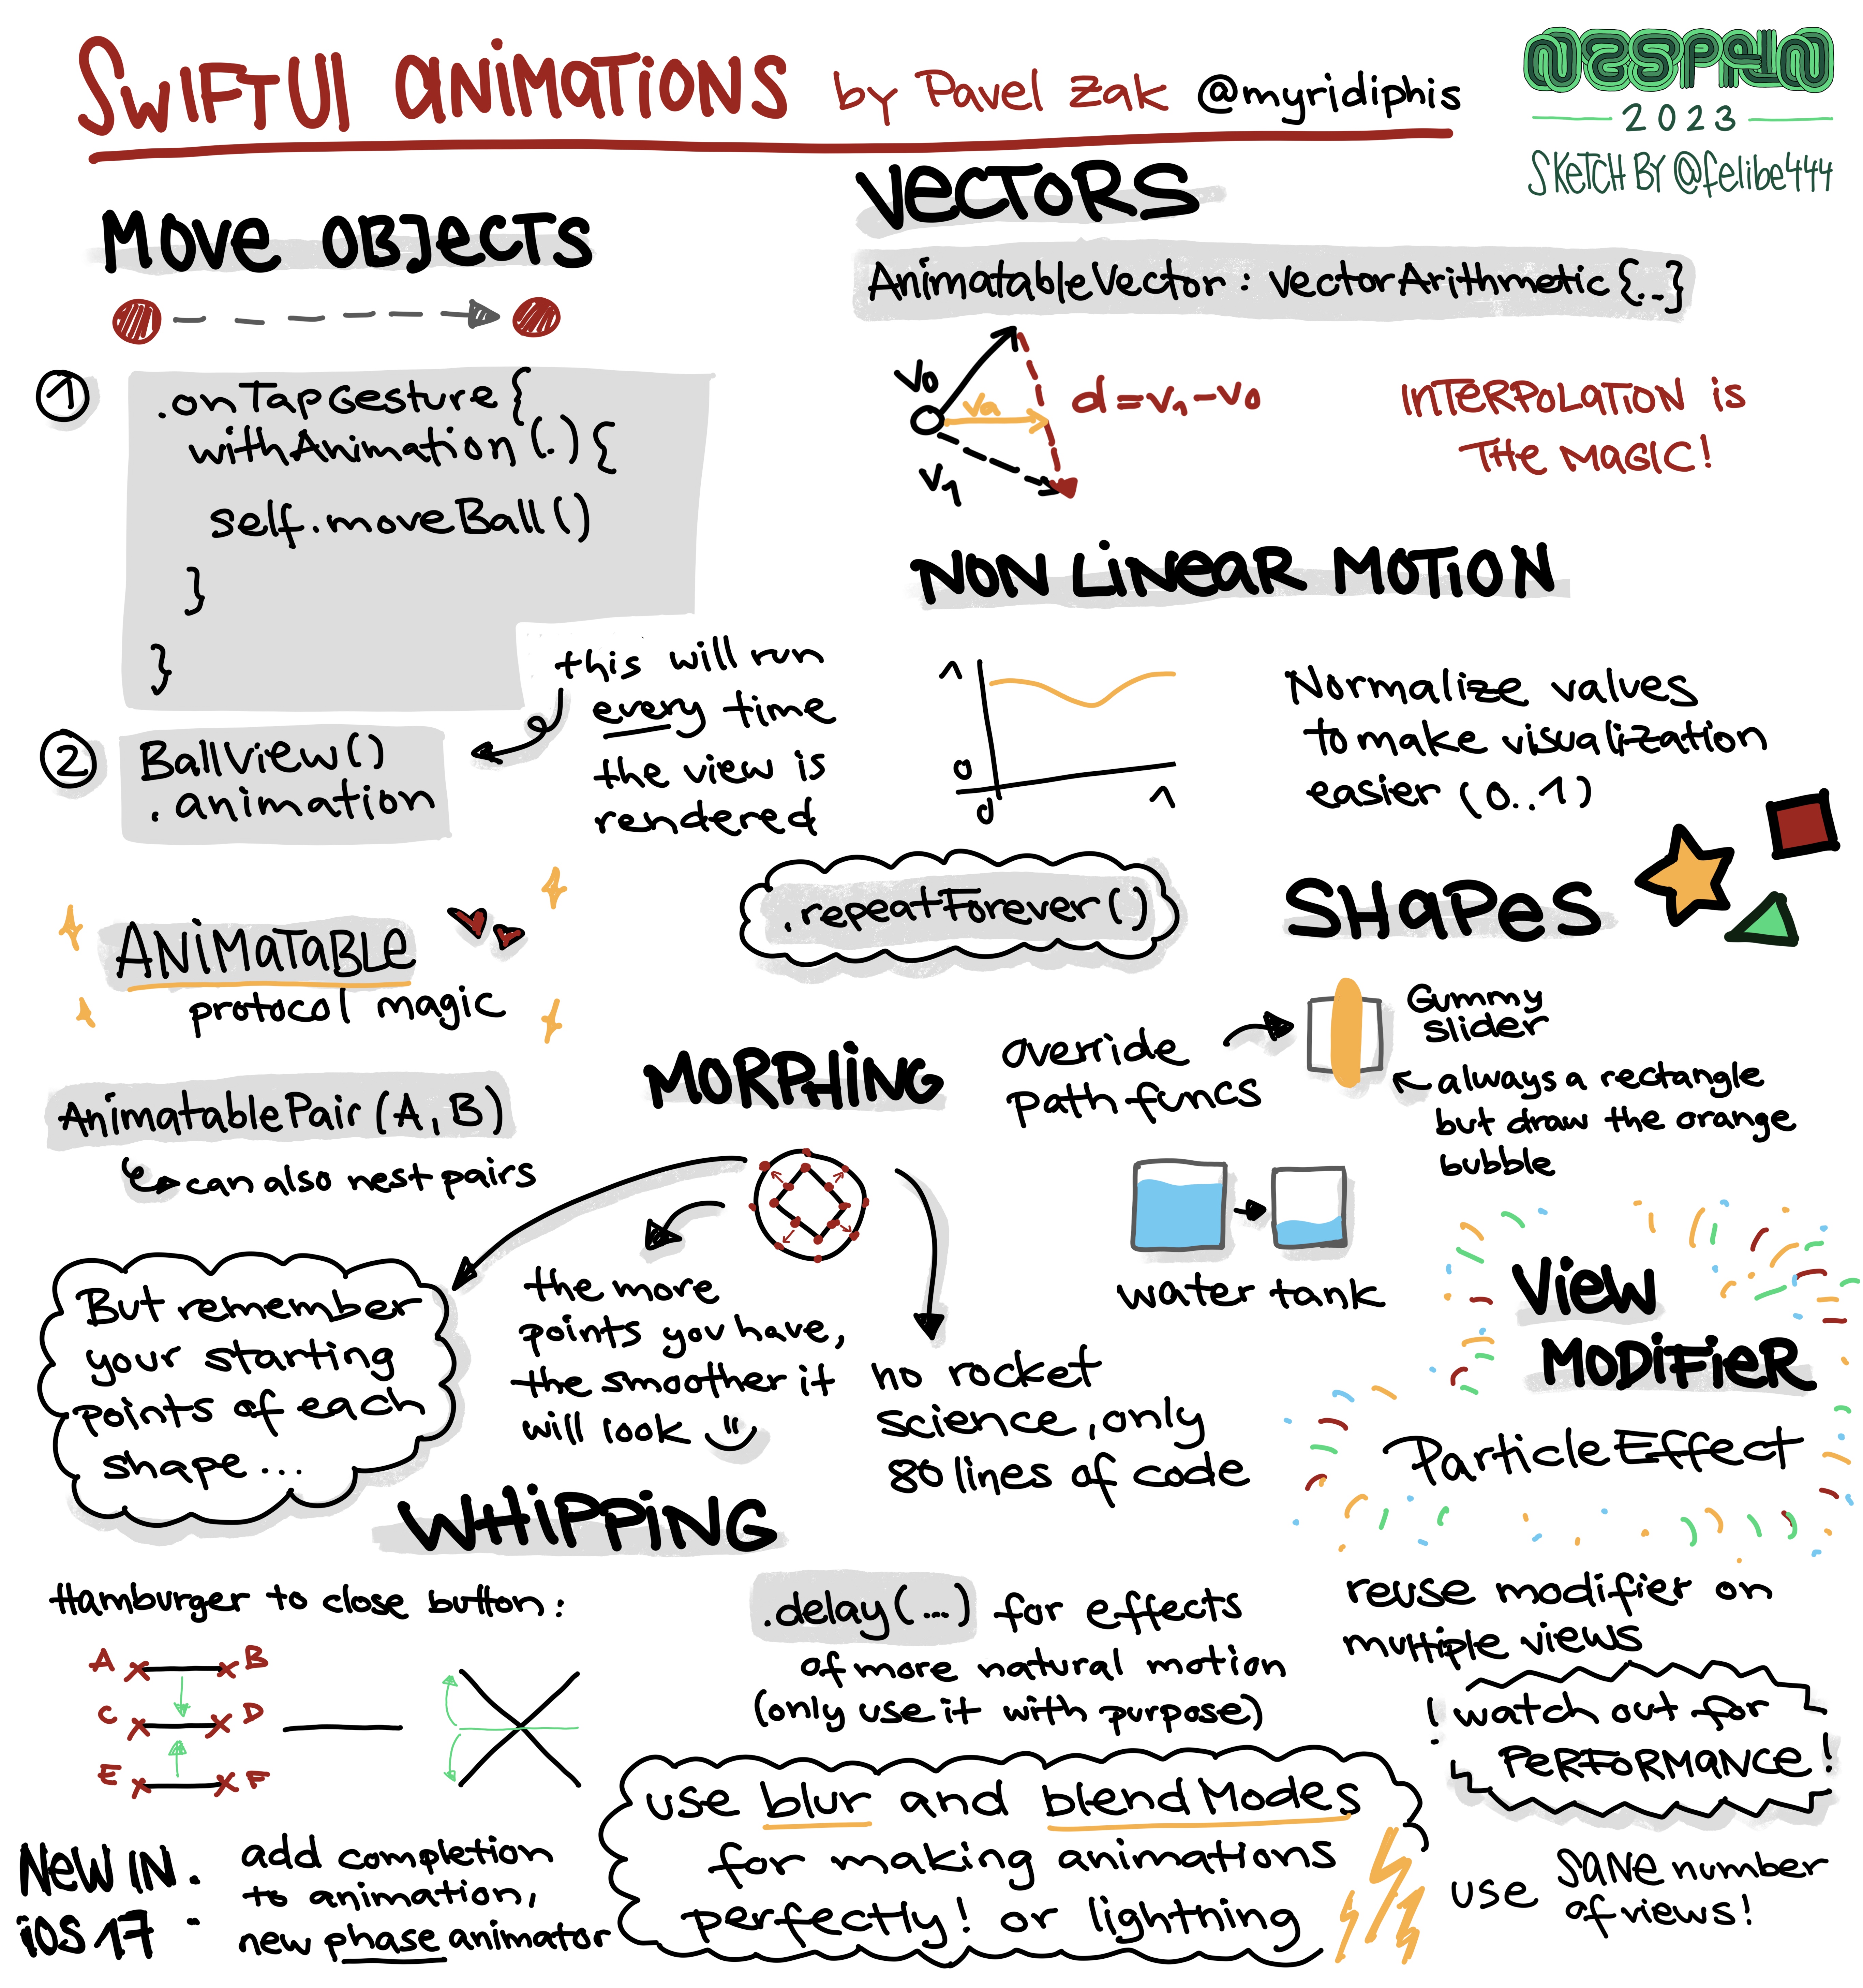 SWIFTUI ANIMATIONS by Pavel Zak @myridiphis
NSSPAIN
2023
SKETCH BY @felibe444
MOVE OBJECTS
1
.onTapGesture {
withAnimation (.) {
self.moveBall ()
}
}
2
BallView ()
.animation
this will run
every time
the view is
rendered
ANIMATABLE
protocol magic
AnimatablePair (A, B)
can also nest pairs
VECTORS
AnimatableVector : VectorArithmetic {..}
V0
Va
V1
d = V1 - V0
INTERPOLATION is
THE MAGIC!
NON LINEAR MOTION
1
0
0
1
Normalize values
to make visualization
easier (0..1)
.repeatForever ()
SHAPES
override
path funcs
Gummy
slider
always a rectangle
but draw the orange
bubble
water tank
MORPHING
But remember
your starting
points of each
shape ...
the more
points you have,
the smoother it
will look
no rocket
science, only
80 lines of code
VIEW
MODIFIER
ParticleEffect
reuse modifier on
multiple views
! watch out for
PERFORMANCE !
use SANE number
of views!
WHIPPING
Hamburger to close button:
A B
C D
E F
.delay (...) for effects
of more natural motion
(only use it with purpose)
use blur and blendModes
for making animations
perfectly! or lightning
NEW IN
iOS 17 :
add completion
to animation,
new phase animator